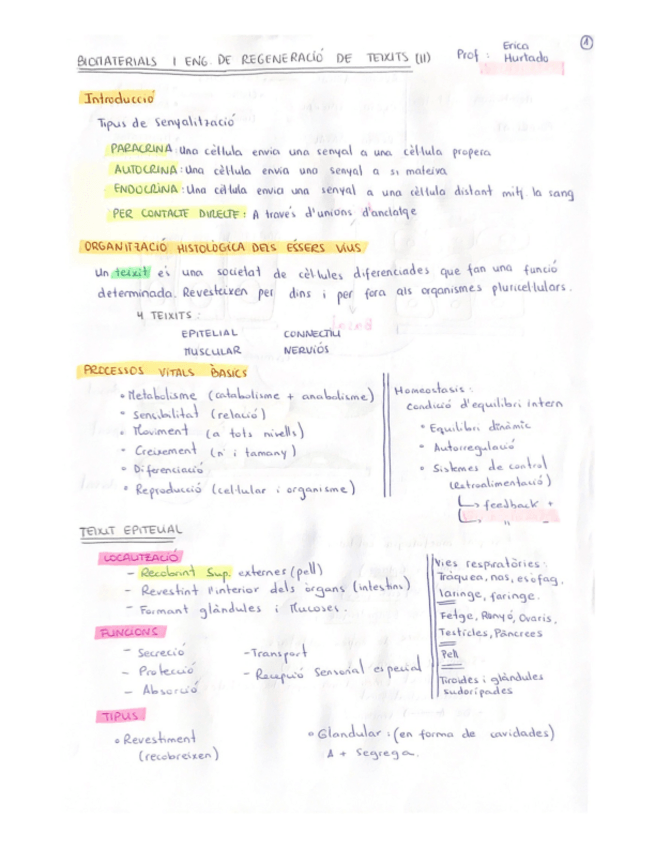 BIOMATERIALS I ENG. DE REGENERACIÓ DE TEIXITS (II) Prof: Erica Hurtado
1
Introducció
Tipus de senyalització
PARACRINA: Una cèl·lula envia una senyal a una cèl·lula propera
AUTOCRINA: Una cèl·lula envia una senyal a si mateixa
ENDOCRINA: Una cèl·lula envia una senyal a una cèl·lula distant mitj. la sang
PER CONTACTE DIRECTE: A través d'unions d'anclatge
ORGANITZACIÓ HISTOLÒGICA DELS ÉSSERS VIUS
Un teixit és una societat de cèl·lules diferenciades que fan una funció
determinada. Revesteixen per dins i per fora als organismes pluricel·lulars.
4 TEIXITS:
EPITELIAL CONNECTIU
MUSCULAR NERVIÓS
PROCESSOS VITALS BÀSICS
• Metabolisme (catabolisme + anabolisme)
• Sensibilitat (relació)
• Moviment (a tots nivells)
• Creixement (nº i tamany)
• Diferenciació
• Reproducció (cel·lular i organisme)
Homeostasis:
condició d'equilibri intern
• Equilibri dinàmic
• Autorregulació
• Sistemes de control
(retroalimentació)
↳ feedback +
↳ " -
TEIXIT EPITELIAL
LOCALITZACIÓ
- Recobrint Sup. externes (pell)
- Revestint l'interior dels òrgans (intestins)
- Formant glàndules i Mucoses.
FUNCIONS
- Secreció - Transport
- Protecció - Recepció Sensorial especial
- Absorció
Vies respiratòries:
Tràquea, nas, esòfag,
laringe, faringe.
Fetge, Ronyó, Ovaris,
Testicles, Pàncrees
Pell
Tiroides i glàndules
sudorípades
TIPUS
• Revestiment
(recobreixen)
• Glandular: (en forma de cavidades)
A + Segrega.